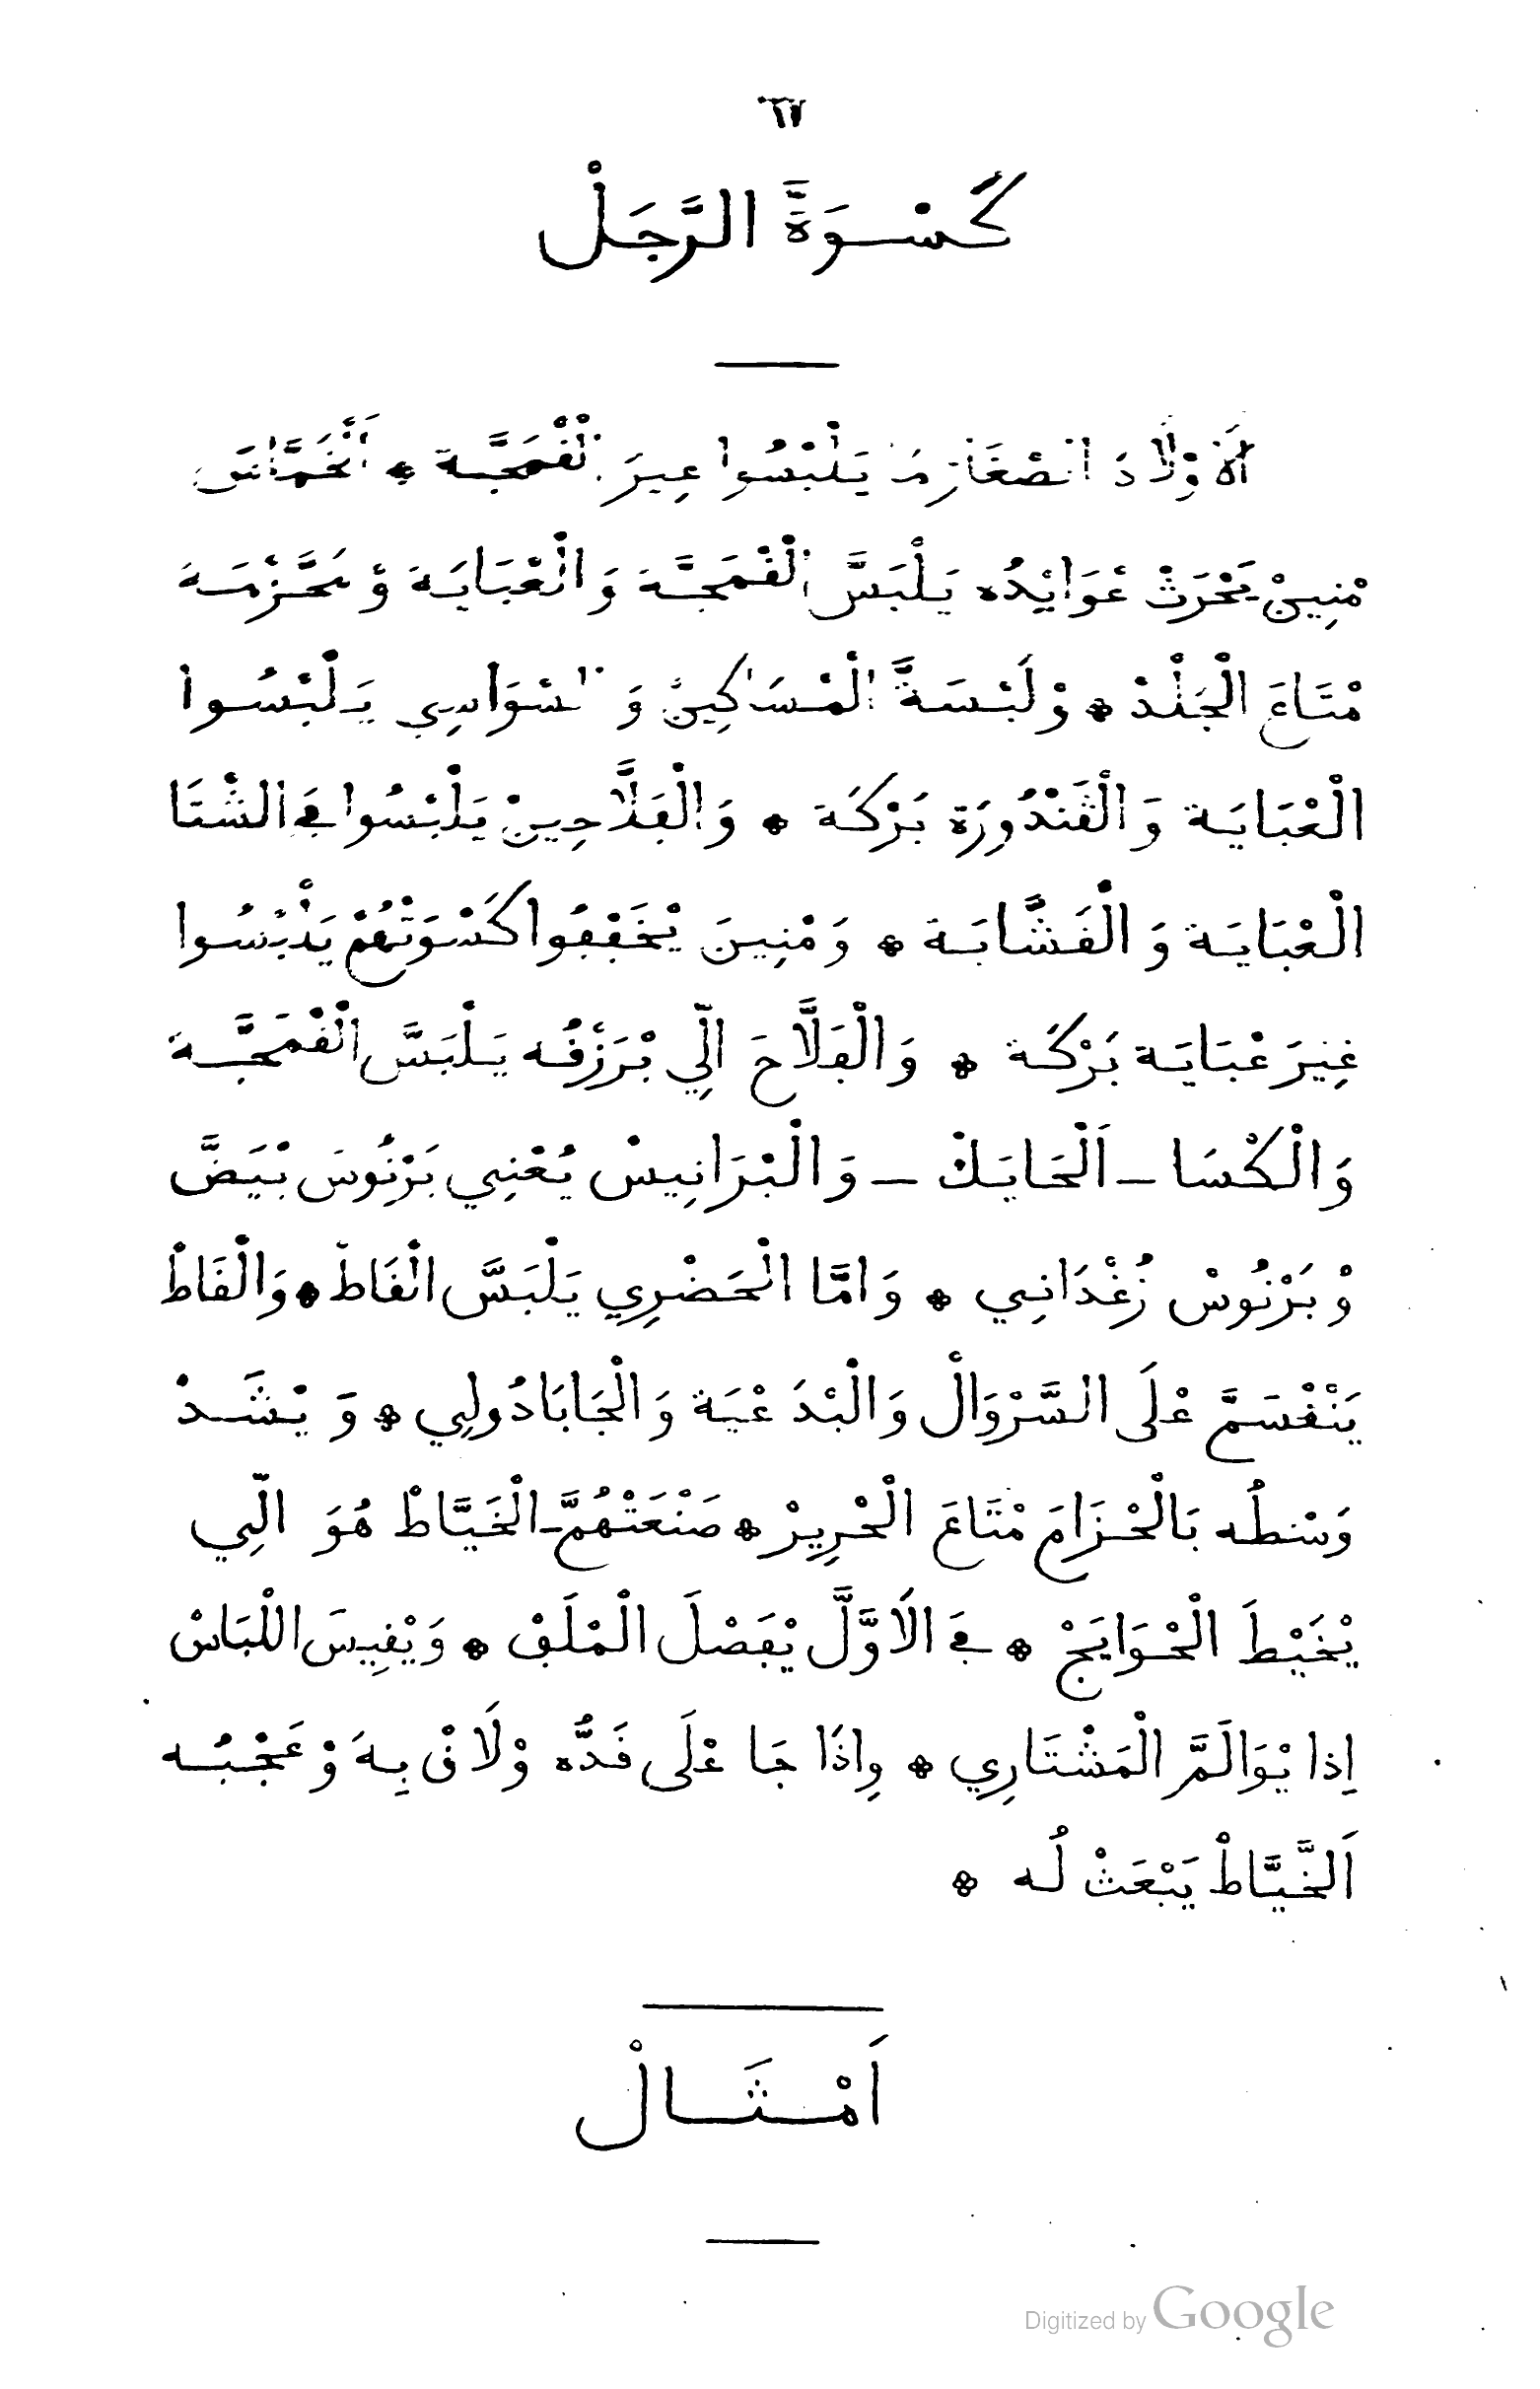 ٦٧
كَسْوَةَ الرَّجَلْ
اَلَاوْلَادَ الصْغَارْ مَا يَلْبْسُوا غِيرَ الْقْمَجَّة * اَلْخَمَّاسْ
مْنِينْ يَحْرَثْ عْوَايْدُه يَلْبَسَّ الْقْمَجَّة وَالْعْبَايَة وْمْحَزْمَة
مْتَاعَ الْجَلْدْ * وْلَبْسَةَّ الْمْسَاكِينْ وَالسْوَاسِي يَلْبْسُوا
الْعْبَايَة وَالْقَنْدُورَة بَرْكَة * وَالْفَلَّاحِينْ يَلْبْسُوا فِي الشْتَا
الْعْبَايَة وَالْقَشَّابَة * وَمْنِينَ يْخَفْفُوا كَسْوَتْهُمْ يَلْبْسُوا
غِيرَ عْبَايَة بَرْكَة * وَالْفَلَّاحَ الِّي بْرَزْقُه يَلْبَسَّ الْقْمَجَّة
وَالْكْسَا – اَلْحَايَكْ – وَالْبْرَانِيسْ يَعْنِي بَرْنُوسَ بْيَضَّ
وْبَرْنُوسْ زُغْدَانِي * وَامَّا الْحَضْرِي يَلْبَسَّ الْقَاطْ * وَالْقَاطْ
يَنْقْسَمَّ عْلَى السَّرْوَالْ وَالْبْدَعْيَة وَالْجَابَادُولِي * وَيْشَدْ
وَسْطُه بَالْحْزَامَ مْتَاعَ الْحْرِيرْ * صَنْعَتْهُمَّ – الْخَيَّاطْ هُوَ الِّي
يْخَيْطَ الْحْوَايَجْ * فِي الَاوَّلَّ يْفَصْلَ الْمْلَفْ * وَيْقِيسَ اللْبَاسْ
إِذا يْوَالَمَّ الْمَشْتَارِي * وِاذَا جَا عْلَى قَدُّه وْلَاقْ بِهَ وْعَجْبُه
اَلْخَيَّاطْ يَبْعَثْ لُه *
اَمْثَالْ
Digitized by Google